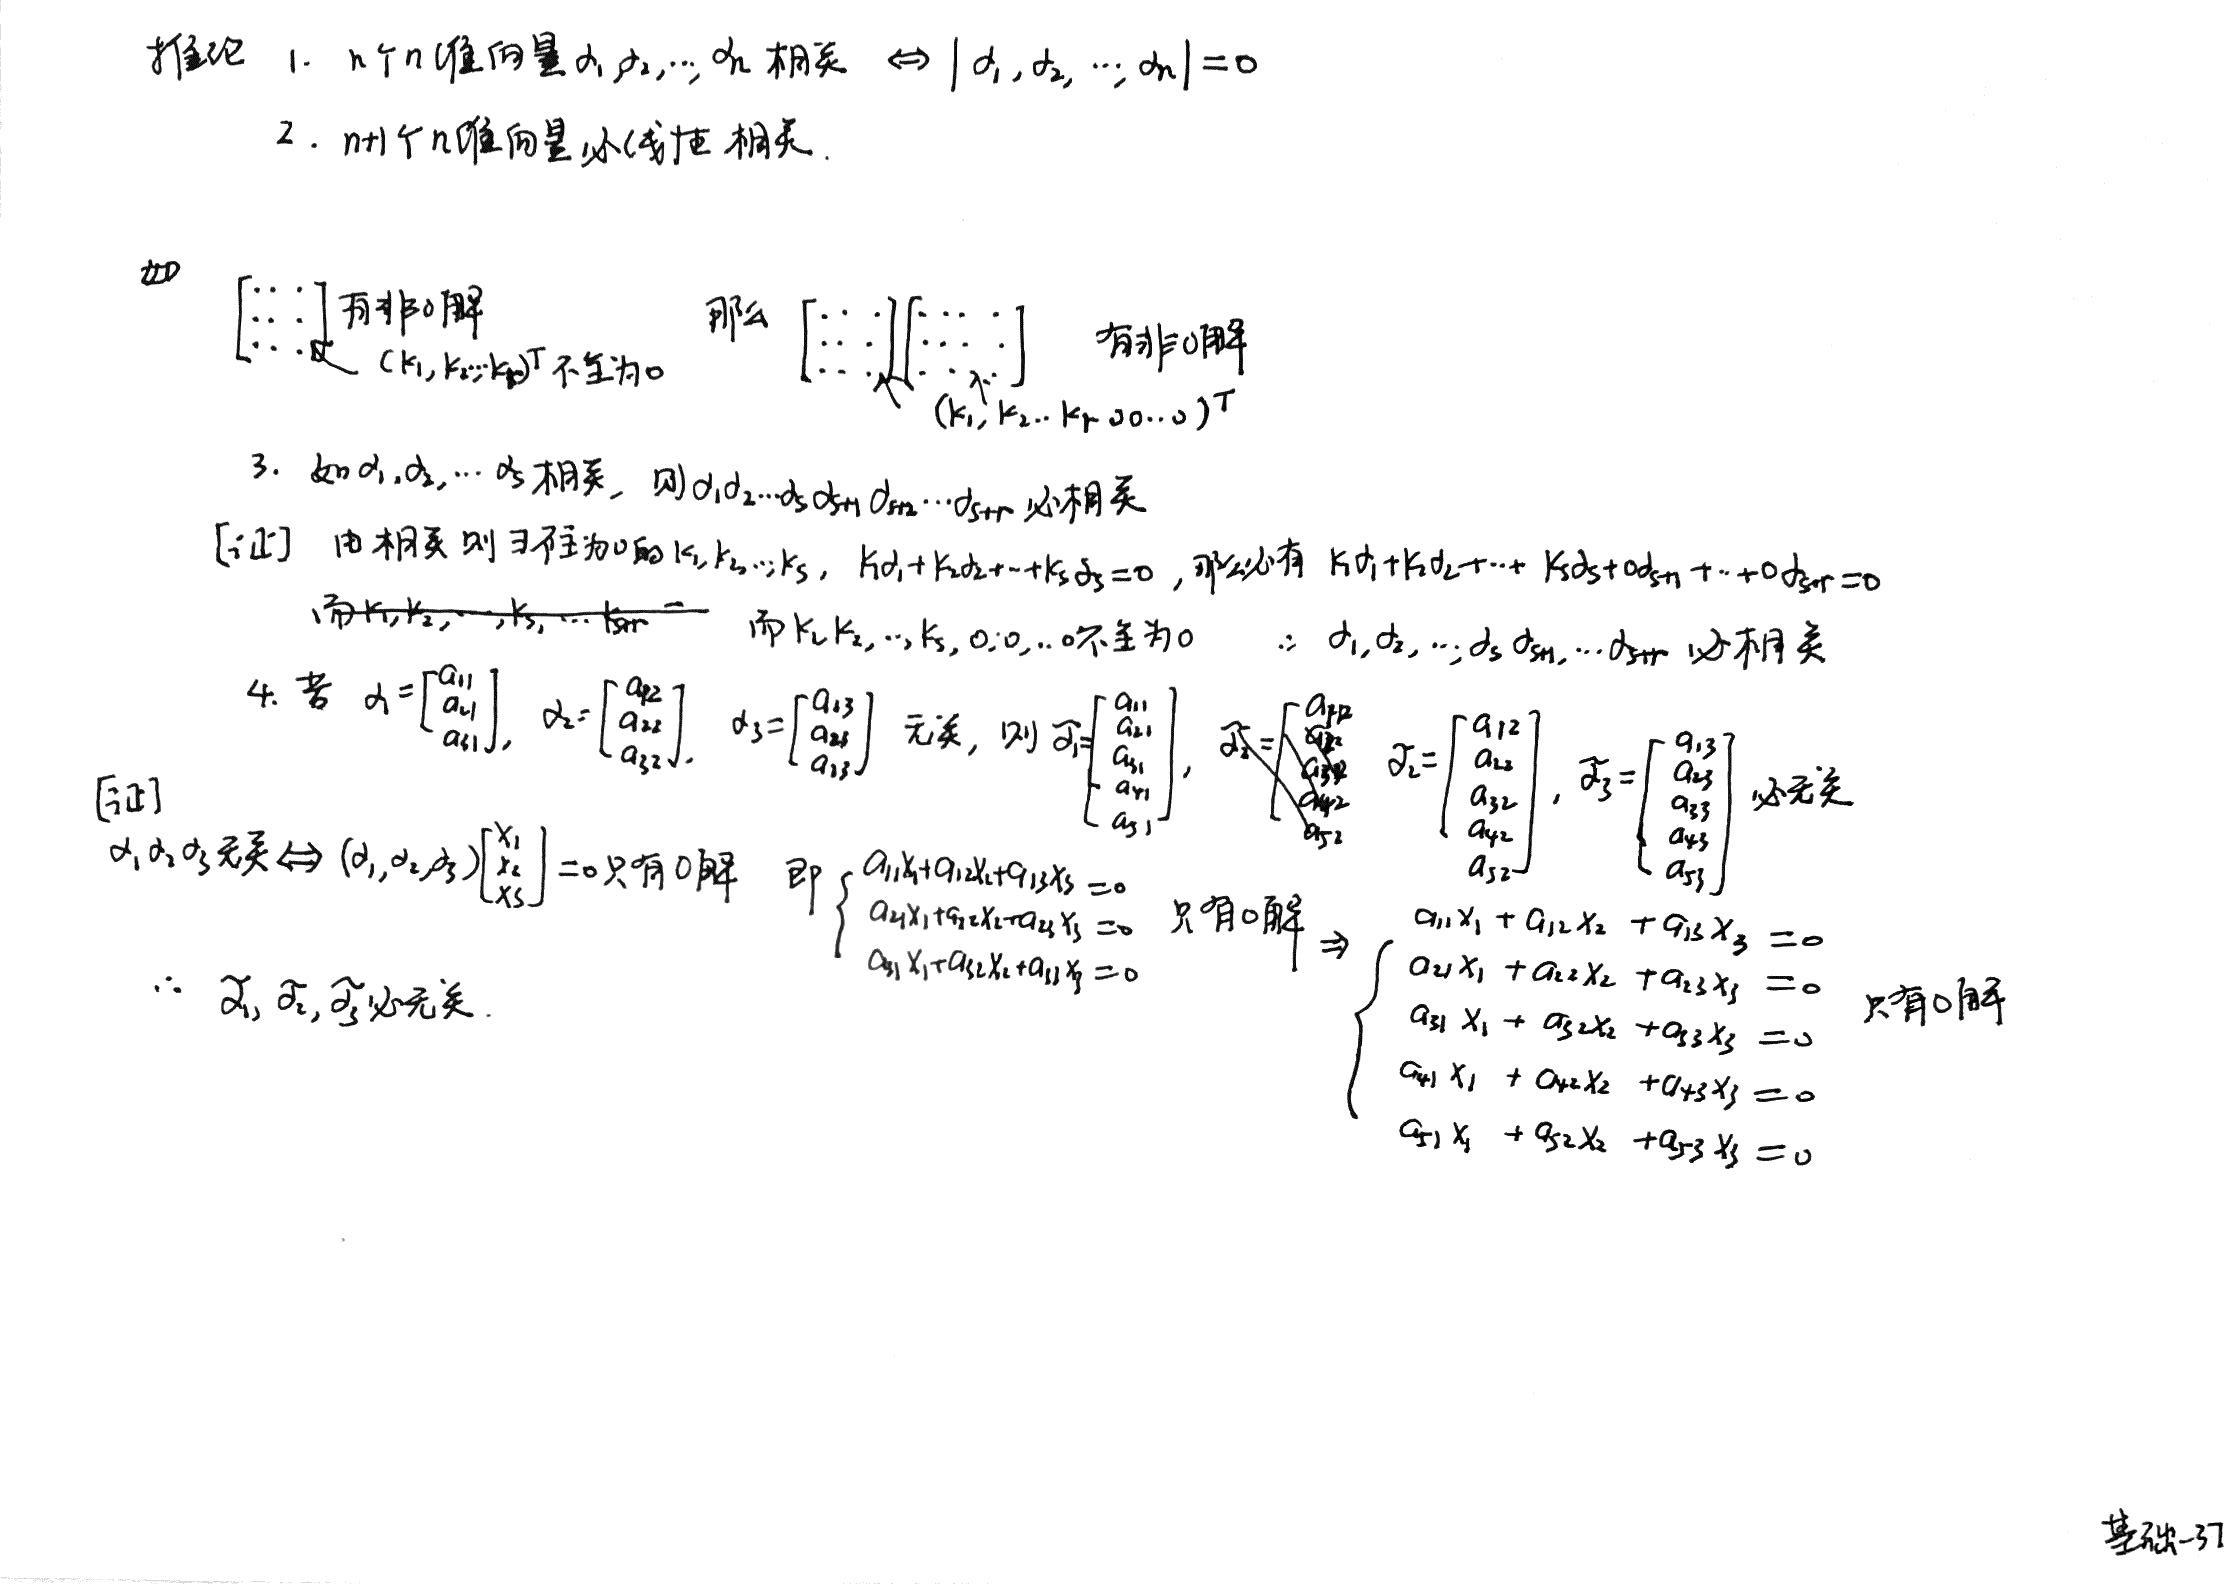 推论 1. n个n维向量α₁,α₂,…,αₙ 相关 ⇔ |α₁,α₂,…,αₙ|=0
2. n+1个n维向量必线性相关.
如 [⋯] 有非0解 那么 [⋯][⋯] 有非0解
(k₁,k₂…,kᵣ)ᵀ不全为0
(k₁,k₂..kᵣ 00…0)ᵀ
3. 如α₁,α₂,…αₛ相关, 则α₁α₂…αₛαₛ₊₁αₛ₊₂…αₛ₊ᵣ必相关
[证] 由相关则∃不全为0的k₁,k₂,…,kₛ, k₁α₁+k₂α₂+…+kₛαₛ=0, 那么必有 k₁α₁+k₂α₂+…+kₛαₛ+0αₛ₊₁+…+0αₛ₊ᵣ=0
而k₁,k₂,…,kₛ,…kₛ₊ᵣ 而k₁,k₂,…,kₛ,0,0,…0不全为0 ∴ α₁,α₂,…,αₛ αₛ₊₁,…αₛ₊ᵣ 必相关
4. 若 α₁=[a₁₁ a₂₁ a₃₁], α₂=[a₁₂ a₂₂ a₃₂], α₃=[a₁₃ a₂₃ a₃₃] 无关, 则 α̃₁=[a₁₁ a₂₁ a₃₁ a₄₁ a₅₁], α̃₂=[a₁₂ a₂₂ a₃₂ a₄₂ a₅₂], α̃₃=[a₁₃ a₂₃ a₃₃ a₄₃ a₅₃] 必无关
[证]
α₁α₂α₃无关⇔(α₁,α₂,α₃)[x₁ x₂ x₃]=0只有0解 即
a₁₁x₁+a₁₂x₂+a₁₃x₃=0
a₂₁x₁+a₂₂x₂+a₂₃x₃=0 只有0解 ⇒
a₃₁x₁+a₃₂x₂+a₃₃x₃=0
a₁₁x₁+a₁₂x₂+a₁₃x₃=0
a₂₁x₁+a₂₂x₂+a₂₃x₃=0
a₃₁x₁+a₃₂x₂+a₃₃x₃=0 只有0解
a₄₁x₁+a₄₂x₂+a₄₃x₃=0
a₅₁x₁+a₅₂x₂+a₅₃x₃=0
∴ α̃₁,α̃₂,α̃₃必无关.
基础-37